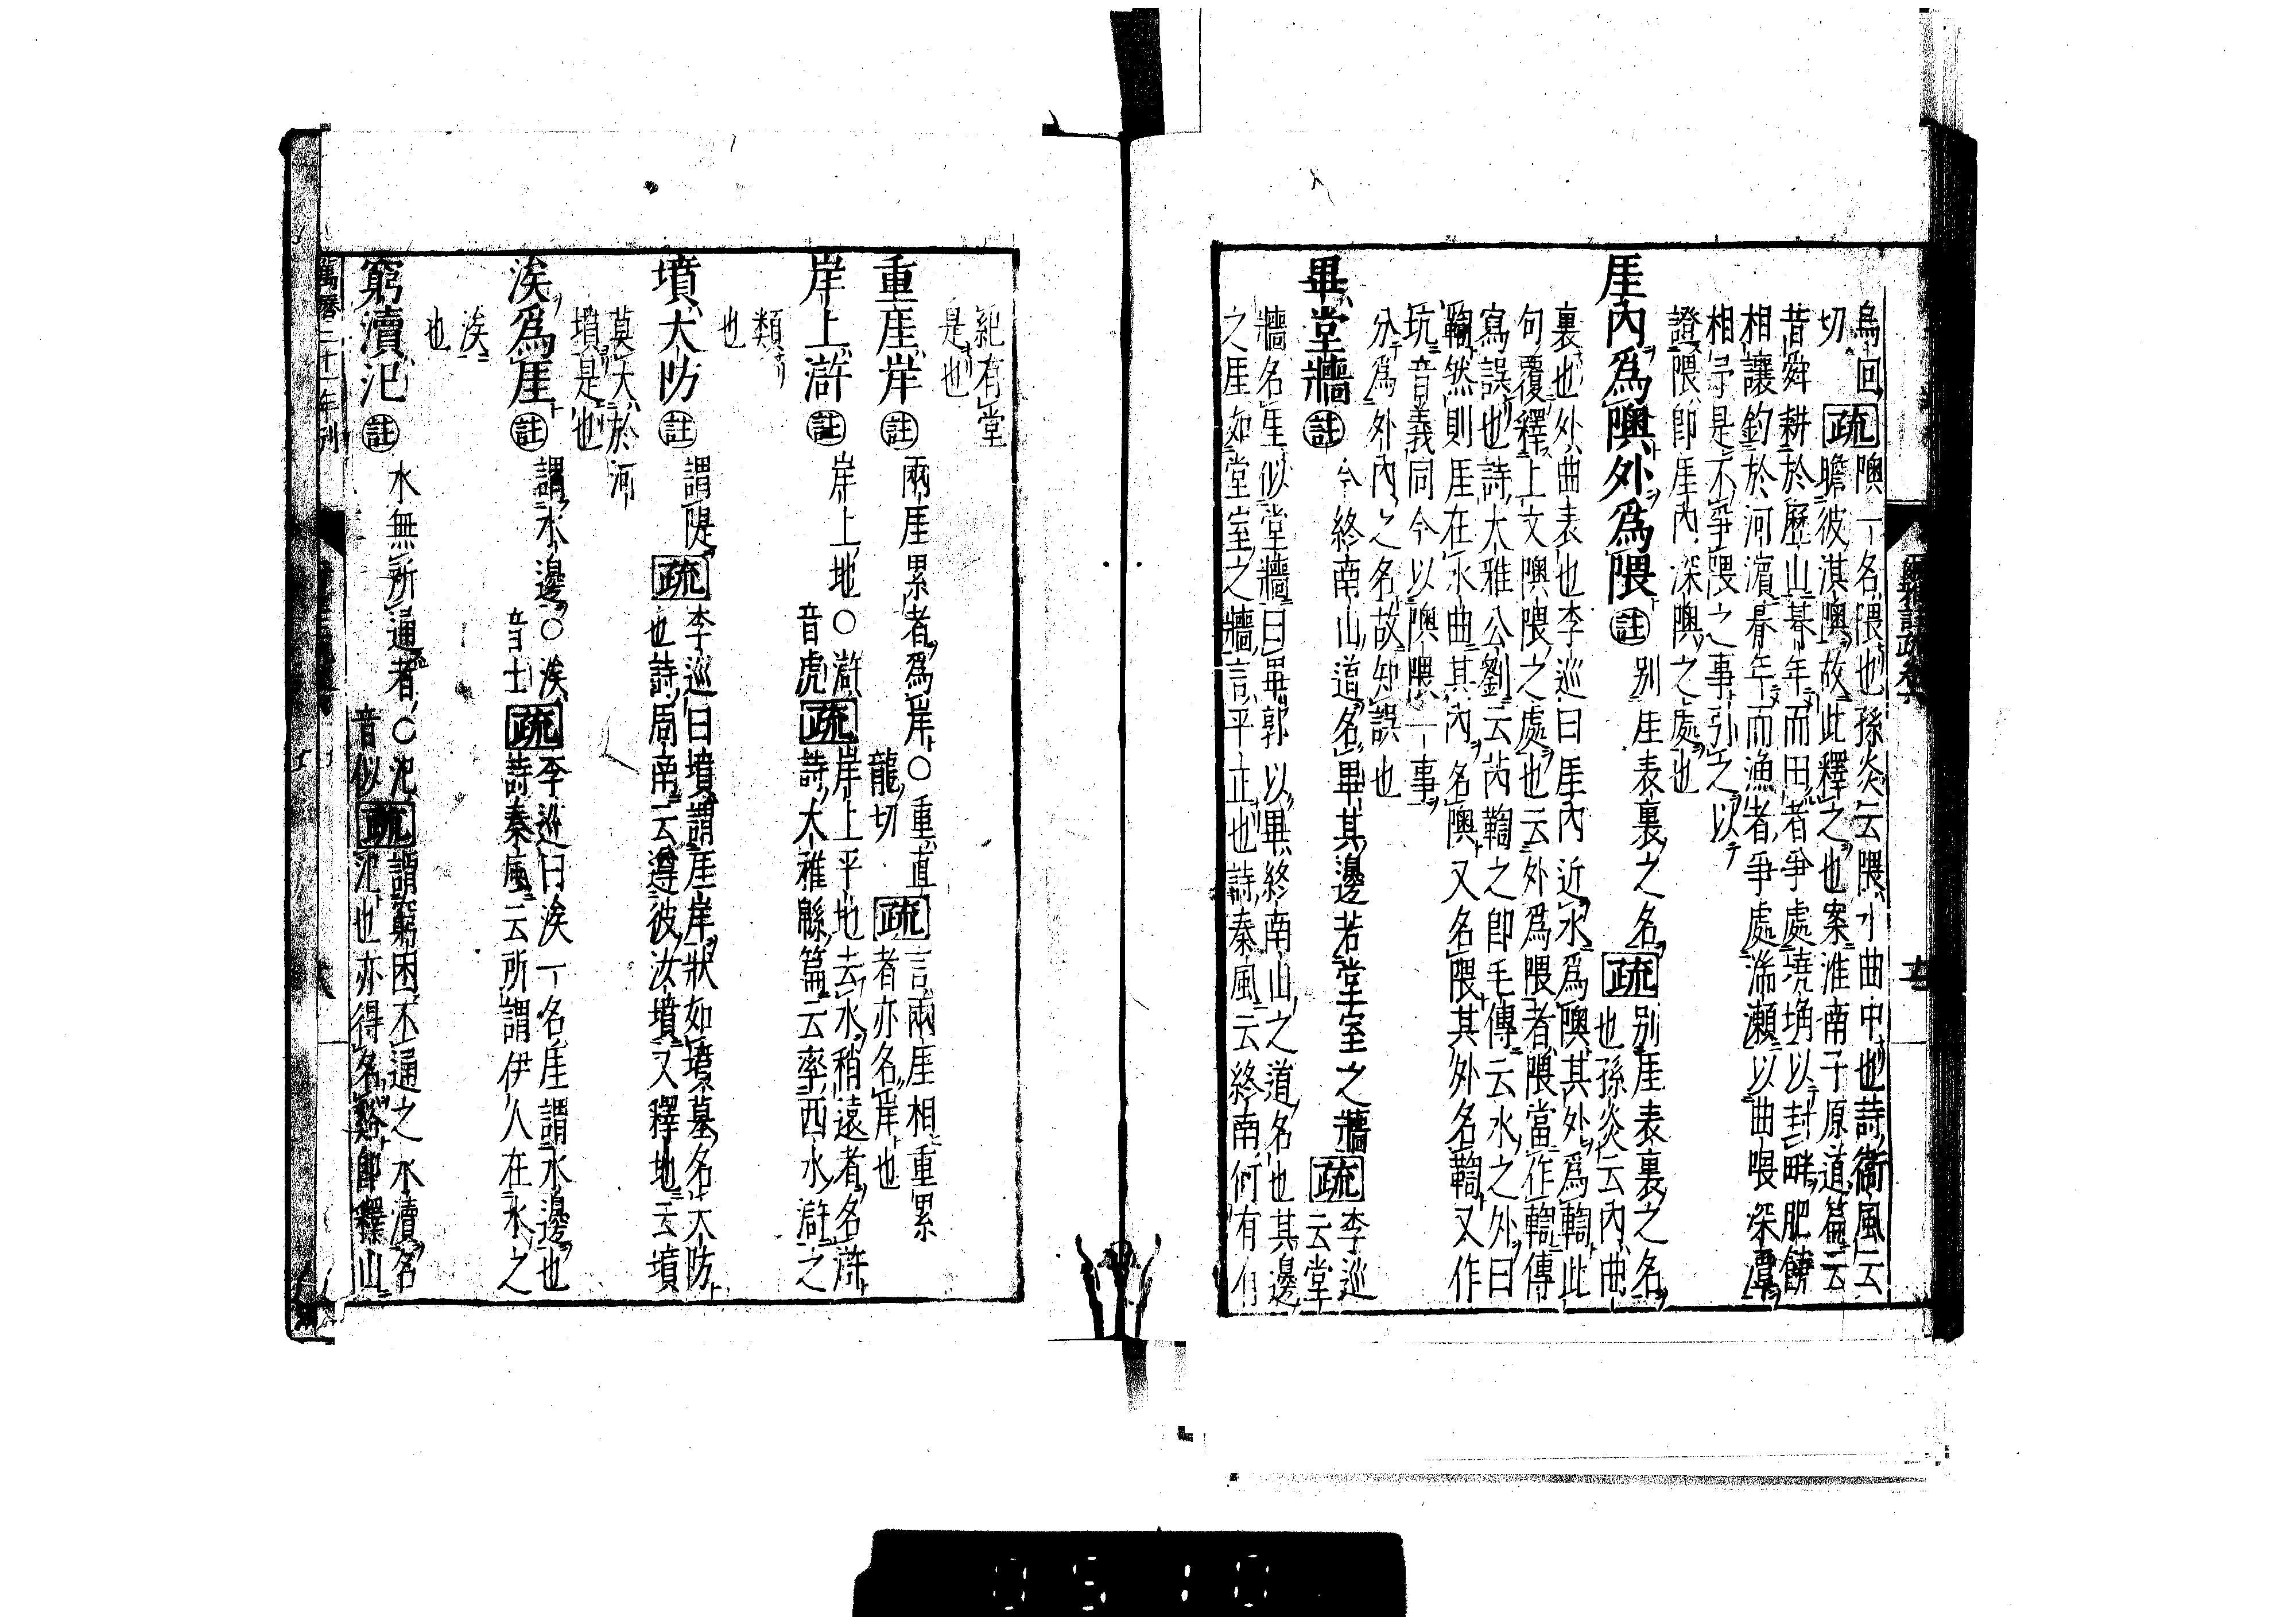 烏回
切
疏
隩一名隈也孫炎云隈水曲中也詩衞風云
瞻彼淇隩故此釋之也案淮南子原道篇云
昔舜耕於歷山朞年而田者爭處墝埆以封畔肥饒
相讓釣於河濱朞年而漁者爭處湍瀨以曲隈深潭
相予是不爭隈之事引之以
證隈即厓內深隩之處也
厓內爲隩外爲隈 註 別厓表裏之名 疏
別厓表裏之名
也孫炎云內曲
裏也外曲表也李巡曰厓內近水爲隩其外爲鞫此
句覆釋上文隩隈之處也云外爲隈者隈當作鞫傳
寫誤也詩大雅公劉云芮鞫之即毛傳云水之外曰
鞫然則厓在水曲其內名隩又名隈其外名鞫又作
坑音義同今以隩隈一事
分爲外內之名故知誤也
畢堂牆 註 今終南山道名畢其邊若堂室之牆 疏
李巡
云堂
牆名厓似堂牆曰畢郭以畢終南山之道名也其邊
之厓如堂室之牆言平正也詩秦風云終南何有有
紀有堂
是也
重厓岸 註 兩厓累者爲岸○重直
龍切
疏
言兩厓相重累
者亦名岸也
岸上滸 註 岸上地○滸
音虎
疏
岸上平地去水稍遠者名滸
詩大雅緜篇云率西水滸之
類
也
墳大防 註 謂隄 疏
李巡曰墳謂厓岸狀如墳墓名大防
也詩周南云遵彼汝墳又釋地云墳
莫大於河
墳是也
涘爲厓 註 謂水邊○涘
音士
疏
李巡曰涘一名厓謂水邊也
詩秦風云所謂伊人在水之
涘
也
窮瀆汜 註 水無所通者○汜
音似
疏
謂窮困不通之水瀆名
汜也亦得名谿即釋山
萬曆二十一年刊